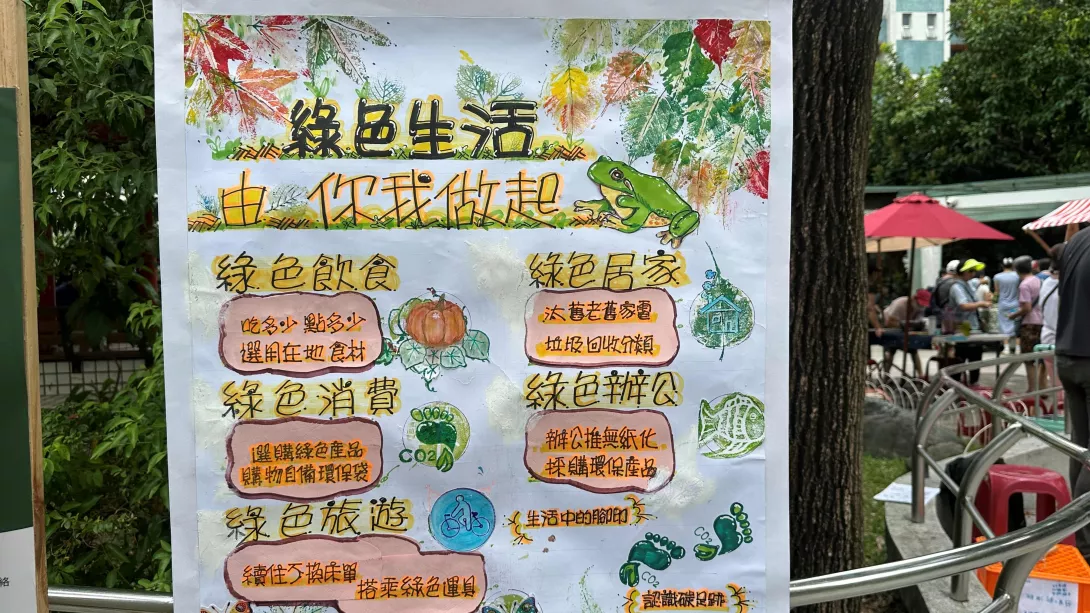 綠色生活
由你我做起
綠色飲食
吃多少 點多少
選用在地食材
綠色消費
選購綠色產品
購物自備環保袋
CO2
綠色旅遊
續住不換床單
搭乘綠色運具
綠色居家
汰舊老舊家電
垃圾回收分類
綠色辦公
辦公推無紙化
採購環保產品
生活中的腳印
CO2
CO2
認識碳足跡
絡